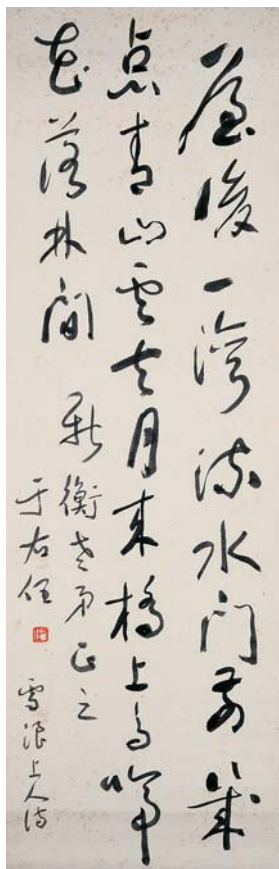 屋後一灣流水門前幾
点青山雲去月來橋上鳥啼
花落林間
新衡老弟正之
于右任
雪浪上人詩